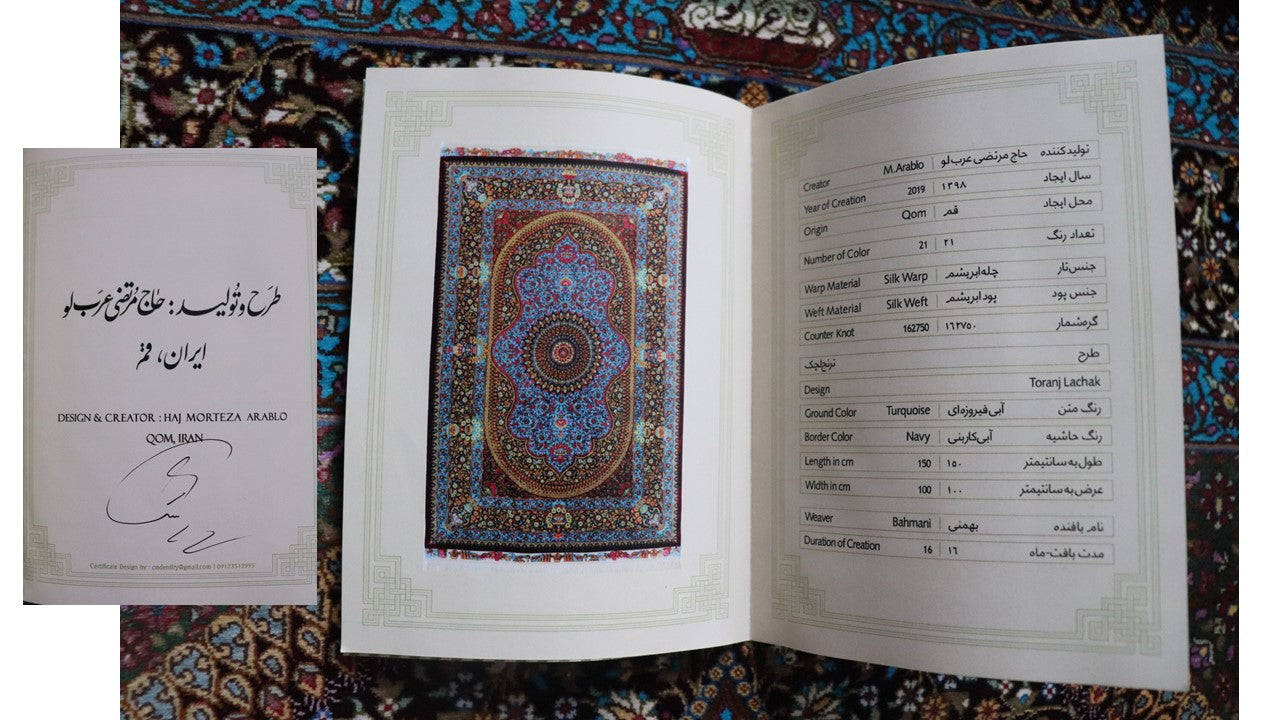 طرح و تولید : حاج مرتضی عرب لو
ایران، قم
DESIGN & CREATOR : HAJ MORTEZA ARABLO
QOM, IRAN
Certificate Design by : omdentity@gmail.com | 09123512995
Creator M.Arablo | حاج مرتضی عرب‌لو تولیدکننده
Year of Creation 2019 | ۱۳۹۸ سال ایجاد
Origin Qom | قم محل ایجاد
Number of Color 21 | ۲۱ تعداد رنگ
Warp Material Silk Warp | چله‌ابریشم جنس‌تار
Weft Material Silk Weft | پودابریشم جنس پود
Counter Knot 162750 | ۱۶۲۷۵۰ گره‌شمار
ترنج‌لچک طرح
Design Toranj Lachak
Ground Color Turquoise | آبی‌فیروزه‌ای رنگ متن
Border Color Navy | آبی‌کاربنی رنگ حاشیه
Length in cm 150 | ۱۵۰ طول‌به‌سانتیمتر
Width in cm 100 | ۱۰۰ عرض‌به‌سانتیمتر
Weaver Bahmani | بهمنی نام بافنده
Duration of Creation 16 | ۱۶ مدت بافت-ماه